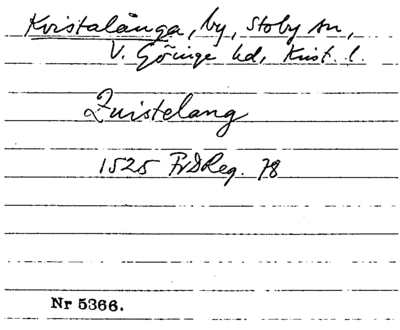 Kvistalånga, by, Stoby sn,
V. Göinge hd, Krist. l.
Quistelang
1525 FrDReg. 78
Nr 5366.